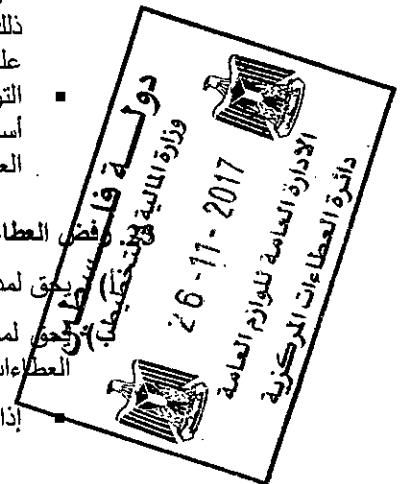 ذلك
عل
▪ التو
أس
الع
رفض العطا
يحق لمد
يحق لمد
العطاءات
▪ إذا
دولة فلسطين
وزارة المالية والتخطيط
26-11-2017
الادارة العامة للوازم العامة
دائرة العطاءات المركزية